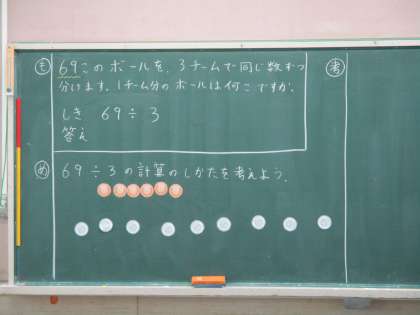 も 69このボールを、3チームで同じ数ずつ
分けます。1チーム分のボールは何こですか。
しき 69÷3
答え
め 69÷3の計算のしかたを考えよう。
考